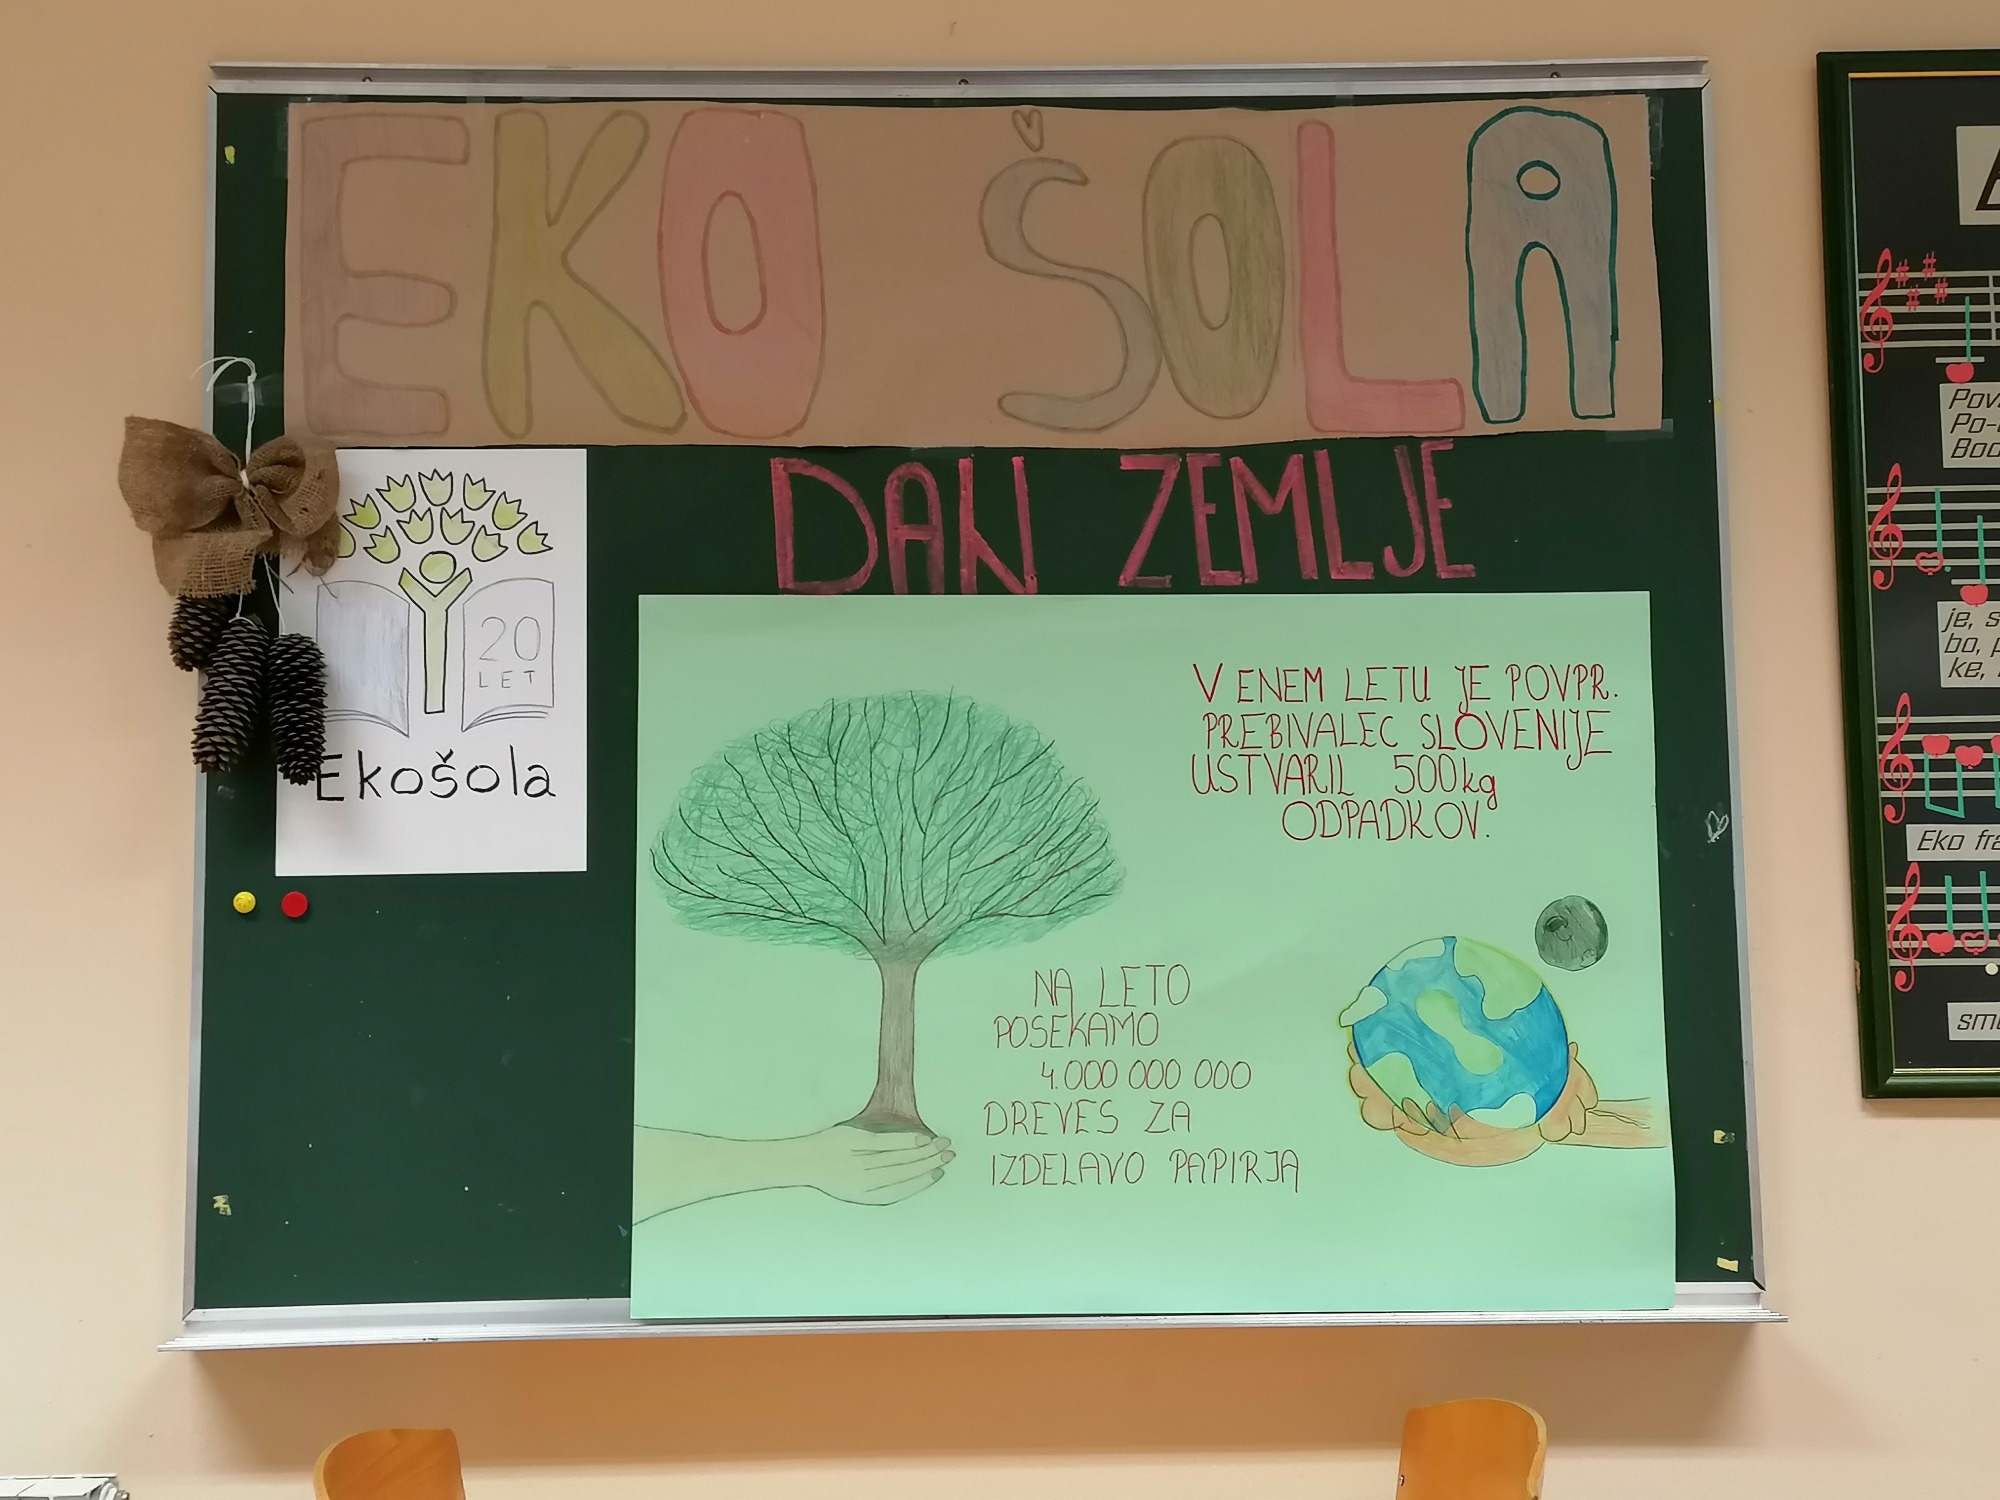 EKO ŠOLA
DAN ZEMLJE
20
LET
Ekošola
V ENEM LETU JE POVPR.
PREBIVALEC SLOVENIJE
USTVARIL 500kg
ODPADKOV.
NA LETO
POSEKAMO
4.000 000 000
DREVES ZA
IZDELAVO PAPIRJA
Po-
je, s
bo,
ke,
Eko